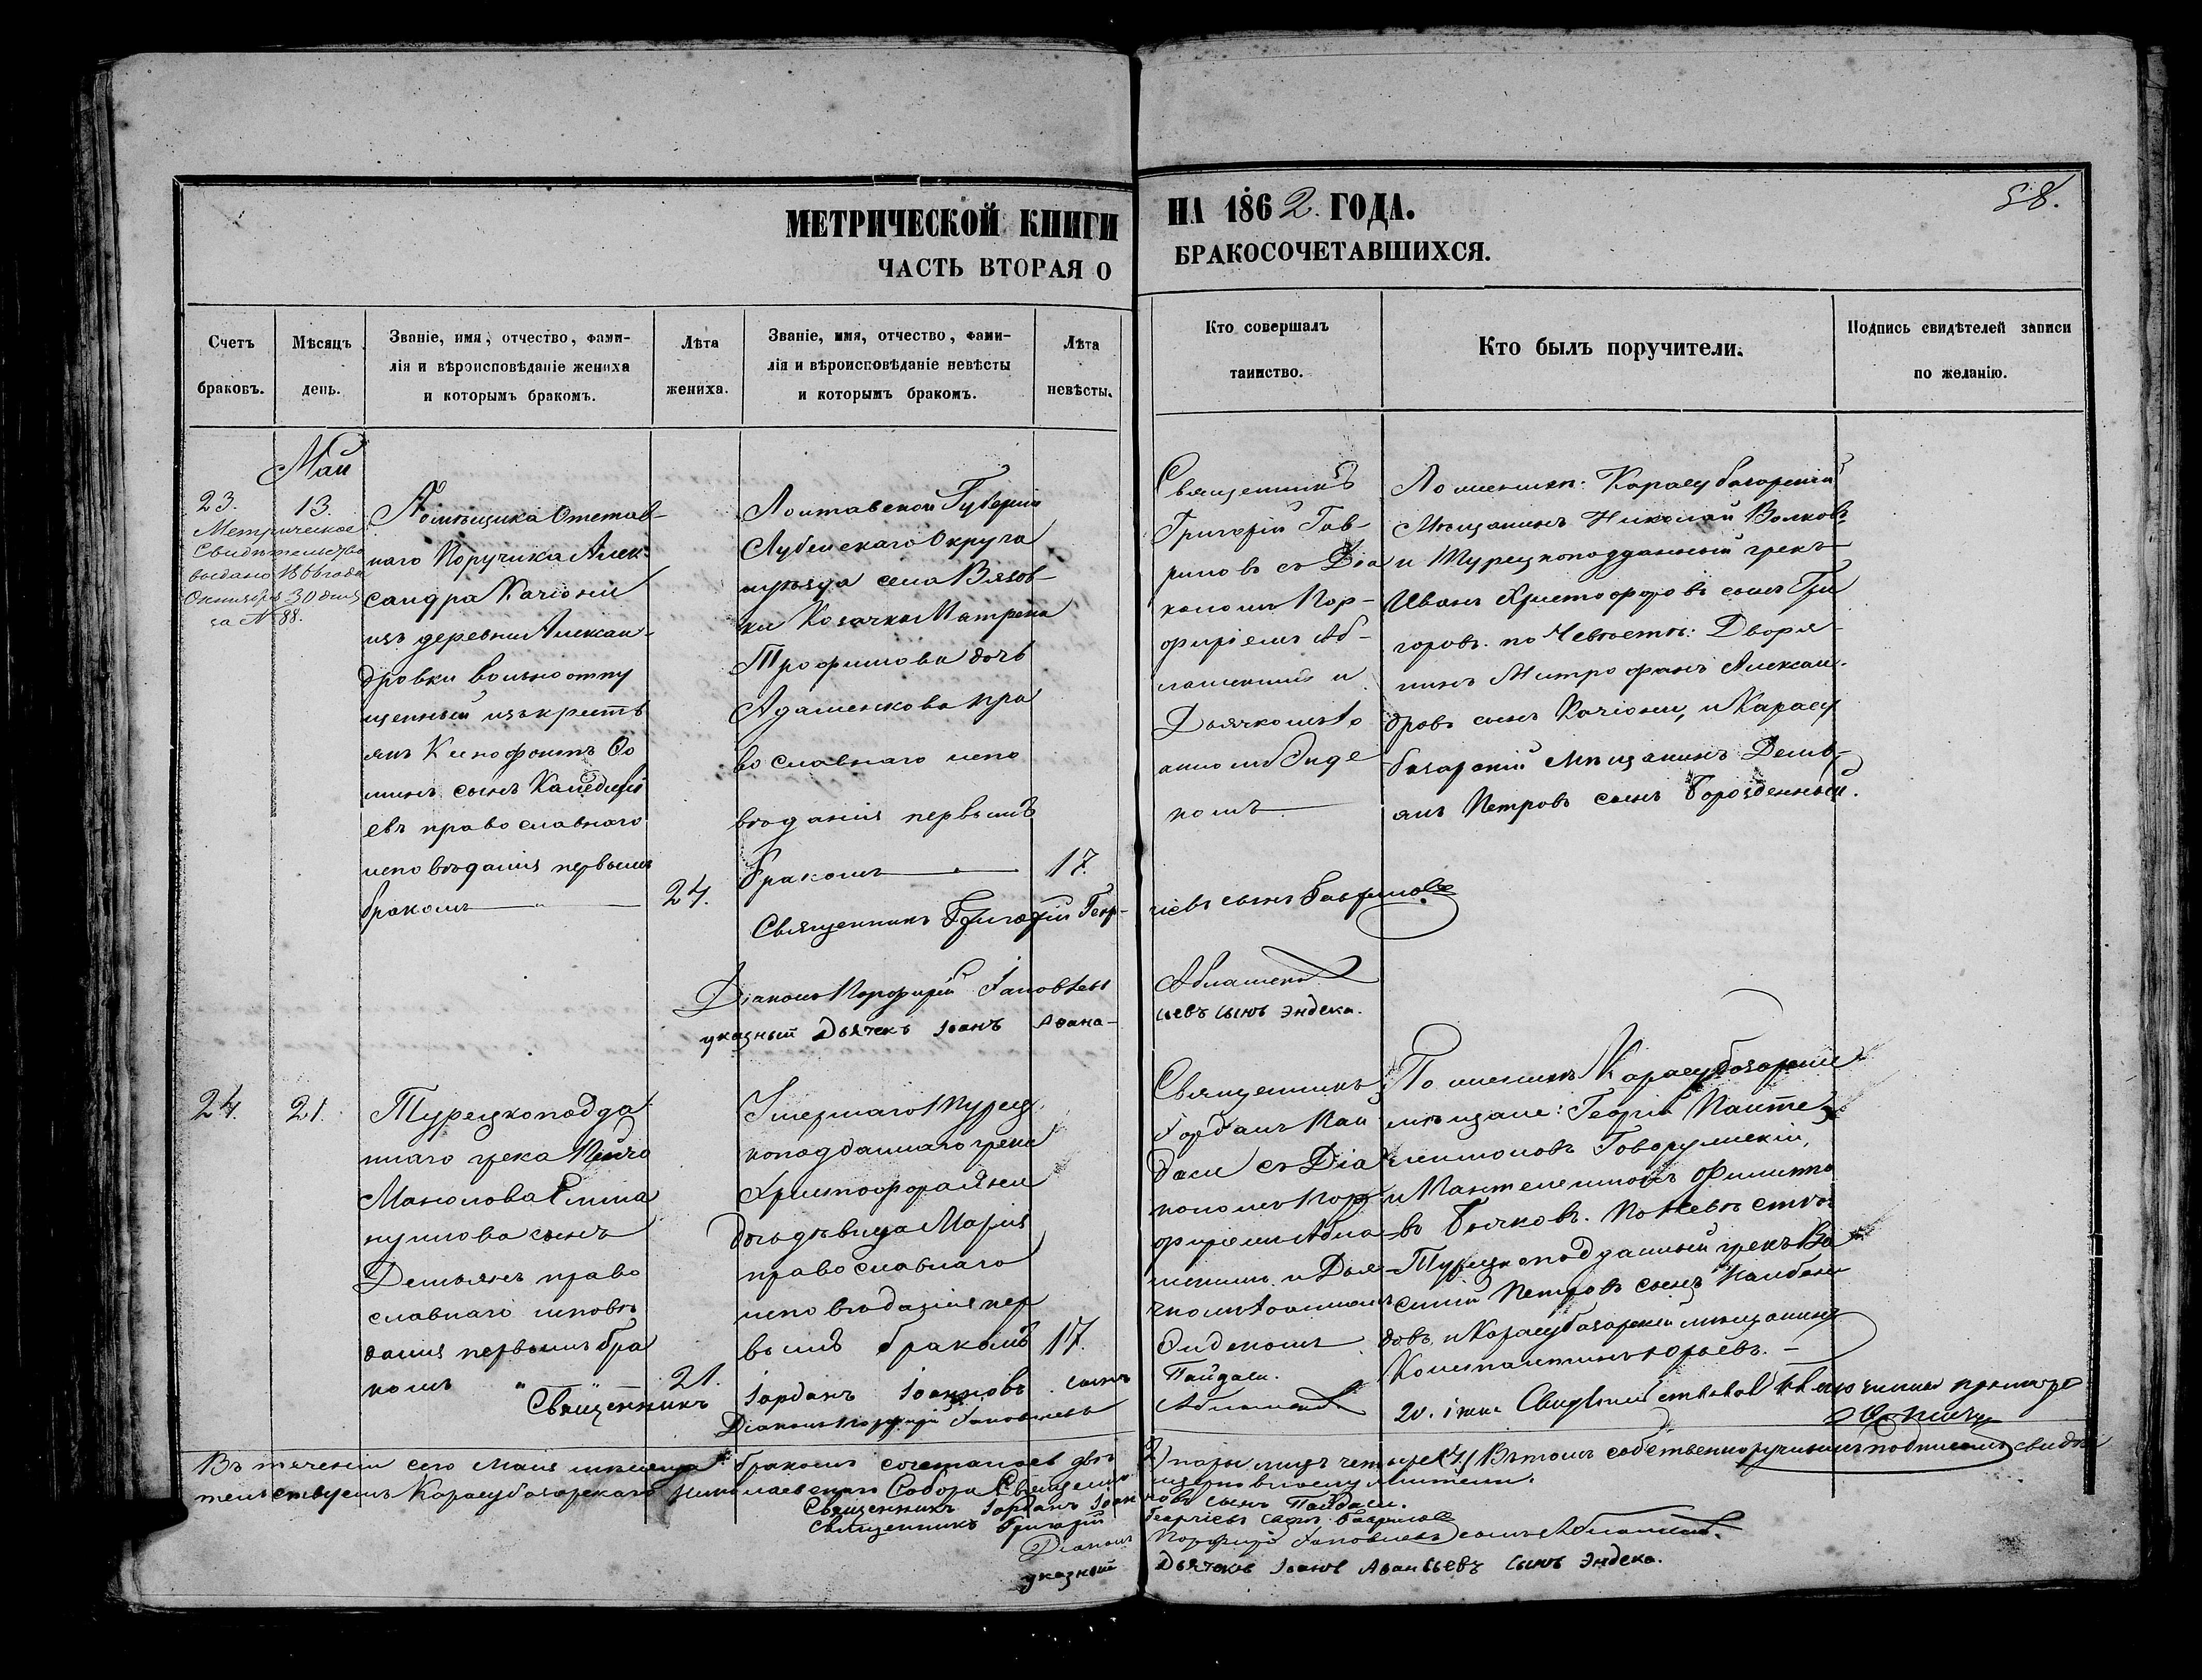 МЕТРИЧЕСКОЙ КНИГИ НА 1862. ГОДА.
58.
ЧАСТЬ ВТОРАЯ О БРАКОСОЧЕТАВШИХСЯ.
Счетъ
браковъ.
Мѣсяцъ
день.
Званіе, имя, отчество, фами-
лія и вѣроисповѣданіе жениха
и которымъ бракомъ.
Лѣта
жениха.
Званіе, имя, отчество, фами-
лія и вѣроисповѣданіе невѣсты
и которымъ бракомъ.
Лѣта
невѣсты.
Кто совершалъ
таинство.
Кто былъ поручители.
Подпись свидѣтелей записи
по желанію.
Май
23. 13.
Метрическое
Свидѣтельство
выдано 1866 года
Октября 30 дня
за № 88.
Помѣщика Отстав-
наго Поручика Алек-
сандра Качіони
изъ деревни Алексан-
дровки вольноотпу
щенный изъ крестъ
янъ Ксенофонтъ Ѳо
минъ сынъ
евъ православнаго
исповѣданія первымъ
бракомъ
24.
Полтавской Губерніи
Лубенскаго Округа
уѣзда села Вязов-
ки Козачка Матрена
Трофимова дочь
Адаменкова пра
вославнаго испо
вѣданія первымъ
бракомъ 17.
Священникъ
Григорій Гав-
риловъ съ Діа
кономъ Пор-
фиріемъ Аб-
лашенкимъ и
Дьячкомъ Іо
анномъ Энде
комъ
По женихѣ: Карасубазарскій
Мѣщанинъ Николай Волковъ
и Турецкоподданный грекъ
Иванъ Христофоровъ сынъ Гри
горовъ. по Невѣстѣ: Дворя-
нинъ Митрофанъ Алексан-
дровъ сынъ Качіони, и Карасу
базарскій Мѣщанинъ Демь-
янъ Петровъ сынъ Борозденный.
Священникъ Григорій Геор- гіевъ сынъ Гавриловъ
Діаконъ Порфирій Іаковлевъ Аблашенко
указный Дьячекъ Іоанъ Аѳана- сьевъ сынъ Эндека.
24. 21.
Турецкоподда
ннаго грека
Манолова
сынъ
Демьянъ право
славнаго исповѣ
данія первымъ бра
комъ 21.
Умершаго Турец
коподданнаго грека
Христофора Яни
дочь дѣвица Марія
православнаго
исповѣданія пер
вымъ бракомъ 17.
Священникъ
Іорданъ Пай
даси съ Діа
кономъ Пор
фиріемъ Абла
шенкимъ и Дья
чкомъ Іоанномъ
Эндекомъ
По женихѣ Карасубазарскіе
мѣщане: Георгій Панте
леимоновъ Говорулискій,
и Пантелеимонъ Филиппо
въ Бычковъ. По Невѣстѣ:
Турецкоподданный грекъ Ва
силій Петровъ сынъ
довъ и Карасубазарскій мѣщанинъ
Константинъ Юрьевъ.
Священникъ Іорданъ Іоанновъ сынъ Пайдаси.
Діаконъ Порфирій Іаковлевъ Аблашенко
20. Іюня Свидѣтельствовалъ
Въ теченіи сего Маія мѣсяца бракомъ сочеталось двѣ 2 пары лицъ четыре (4) Въ томъ собственноручнымъ подписомъ свидѣ
тельствуемъ Карасубазарскаго Николаевскаго Собора Священно церковнослужители.
Священникъ Іорданъ Іоан новъ сынъ Пайдаси.
Священникъ Григорій Георгіевъ сынъ Гавриловъ
Діаконъ Порфирій Іаковлевъ сынъ Аблашенко.
указный Дьячекъ Іоанъ Аѳансьевъ сынъ Эндека.